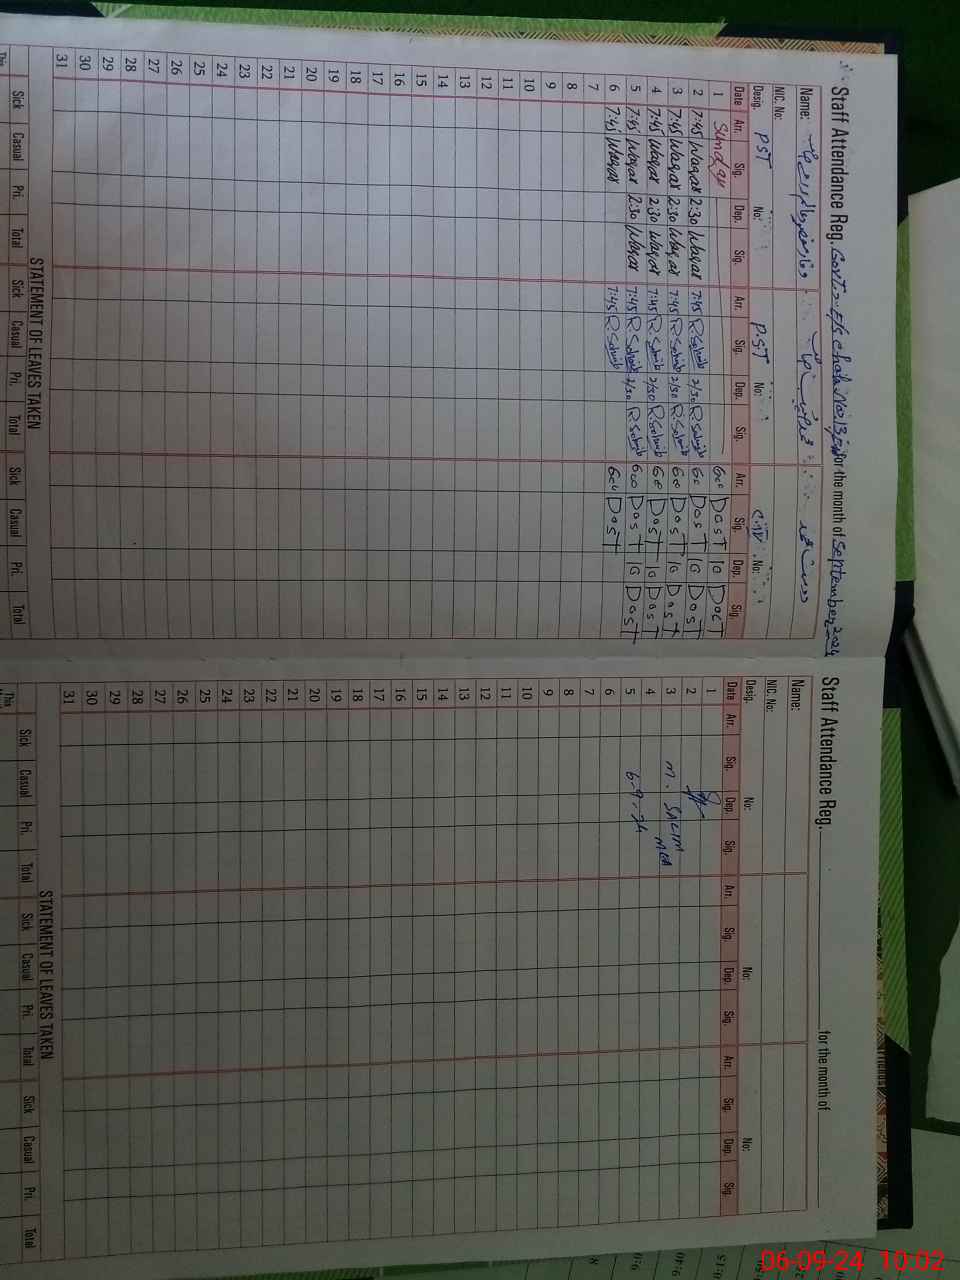 Staff Attendance Reg. for the month of September 2024
Name: دوست محمد
NIC. No:
Desig. PST No: P.ST No: No:
Date Arr. Sig. Dep. Sig. Arr. Sig. Dep. Sig. Arr. Sig. Dep. Sig.
1 Sunday 600 DosT 10 DosT
2 7:45 Waqar 2:30 Waqar 7:45 R.Sohaib 2/30 R.Sohaib 60 DosT 10 DosT
3 7:45 Waqar 2:30 Waqar 7:45 R.Sohaib 2/30 R.Sohaib 60 DosT 10 DosT
4 7:45 Waqar 2:30 Waqar 7:45 R.Sohaib 2/30 R.Sohaib 60 DosT 10 DosT
5 7:45 Waqar 2:30 Waqar 7:45 R.Sohaib 2/30 R.Sohaib 600 DosT 10 DosT
6 7:45 Waqar 7:45 R.Sohaib 600 DosT
7
8
9
10
11
12
13
14
15
16
17
18
19
20
21
22
23
24
25
26
27
28
29
30
31
STATEMENT OF LEAVES TAKEN
Sick Casual Pri. Total Sick Casual Pri. Total Sick Casual Pri. Total
This
Staff Attendance Reg. for the month of
Name:
NIC. No:
Desig. No: No: No:
Date Arr. Sig. Dep. Sig. Arr. Sig. Dep. Sig. Arr. Sig. Dep. Sig.
1
2
3 M. SALIM
4 MEA
5 6-9-24
6
7
8
9
10
11
12
13
14
15
16
17
18
19
20
21
22
23
24
25
26
27
28
29
30
31
STATEMENT OF LEAVES TAKEN
Sick Casual Pri. Total Sick Casual Pri. Total Sick Casual Pri. Total
This
06-09-24 10:02